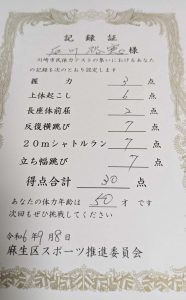 記録証
石川 様
川崎市民体力テストの集いにおけるあなた
の記録を次のとおり認定します
握力 3 点
上体起こし 6 点
長座体前屈 2 点
反復横跳び 7 点
20mシャトルラン 7 点
立ち幅跳び 7 点
得点合計 30 点
あなたの体力年齢は 50 才 です
次回もぜひ挑戦してください
令和6年9月8日
麻生区スポーツ推進委員会